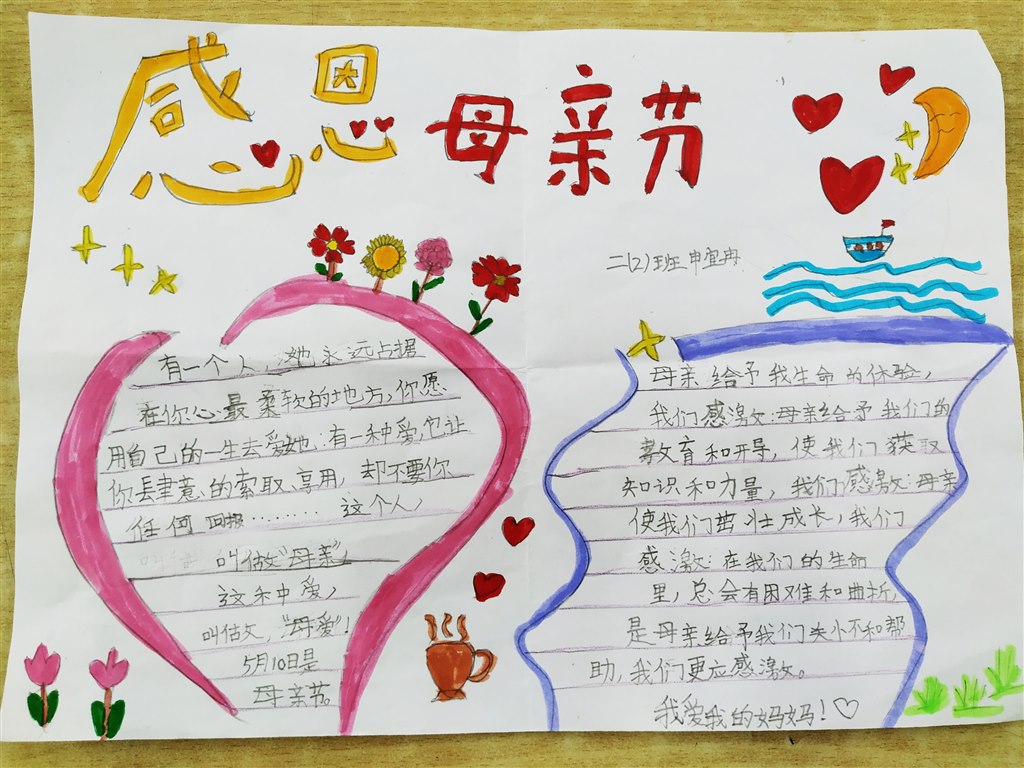 感恩母亲节
二(2)班申宜冉
有一个人,她永远占据
在你心最柔软的地方,你愿
用自己的一生去爱她;有一种爱,它让
你肆意的索取、享用,却不要你
任何回报………这个人,
叫做"母亲",
这种爱,
叫做,"母爱"!
5月10日是
母亲节。
母亲给予我生命的体验,
我们感激;母亲给予我们的
教育和开导,使我们获取
知识和力量,我们感激;母亲
使我们茁壮成长,我们
感激;在我们的生命
里,总会有困难和曲折,
是母亲给予我们关心和帮
助,我们更应感激。
我爱我的妈妈!♡